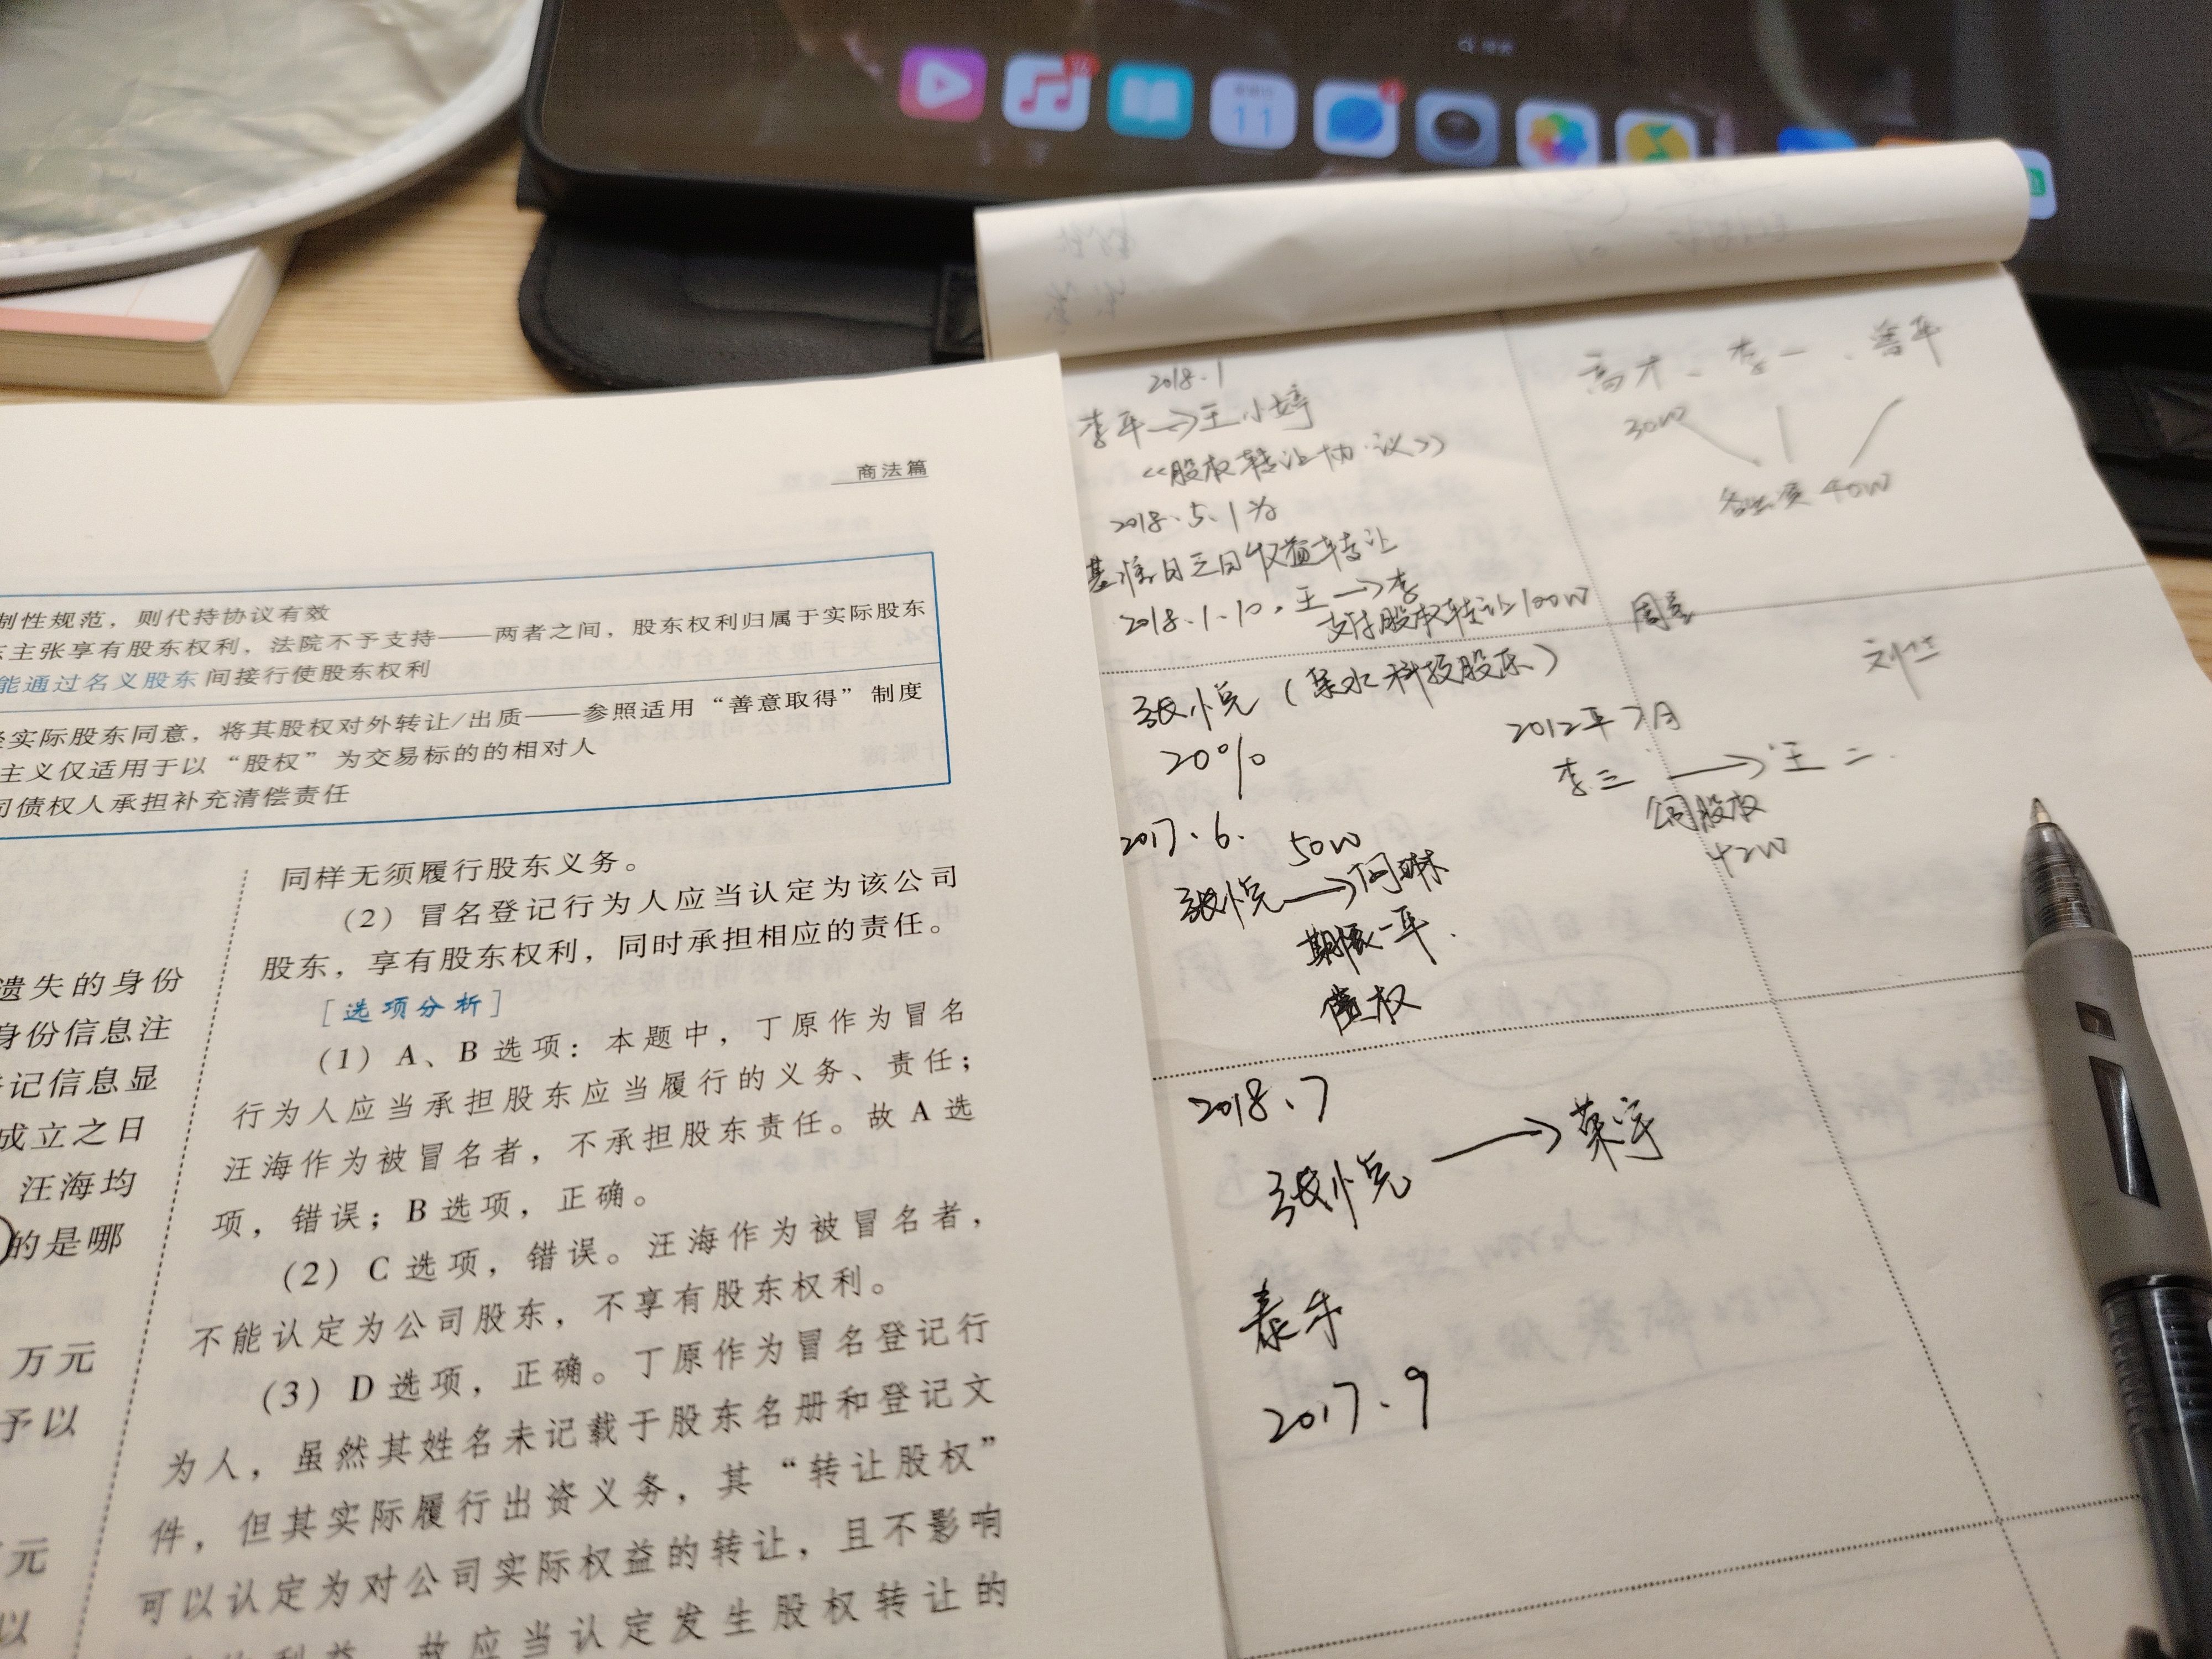 商法篇
制性规范，则代持协议有效
东主张享有股东权利，法院不予支持——两者之间，股东权利归属于实际股东
能通过名义股东间接行使股东权利
经实际股东同意，将其股权对外转让/出质——参照适用“善意取得”制度
主义仅适用于以“股权”为交易标的的相对人
司债权人承担补充清偿责任
遗失的身份
身份信息注
记信息显
成立之日
汪海均
的是哪
万元
予以
元
以
同样无须履行股东义务。
（2）冒名登记行为人应当认定为该公司
股东，享有股东权利，同时承担相应的责任。
［选项分析］
（1）A、B 选项：本题中，丁原作为冒名
行为人应当承担股东应当履行的义务、责任；
汪海作为被冒名者，不承担股东责任。故 A 选
项，错误；B 选项，正确。
（2）C 选项，错误。汪海作为被冒名者，
不能认定为公司股东，不享有股东权利。
（3）D 选项，正确。丁原作为冒名登记行
为人，虽然其姓名未记载于股东名册和登记文
件，但其实际履行出资义务，其“转让股权”
可以认定为对公司实际权益的转让，且不影响
利益，故应当认定发生股权转让的
2018.1
李平→王小婷
《股权转让协议》
2018.5.1为
基准日三日权益转让
2018.1.10，王→李
支付股权转让100W
张悦（某水科技股东）
20%
2017.6.
50W
张悦→何琳
期限一年.
债权
2018.7
张悦→荣宇
泰乐
2017.9
高才、李一、鲁平
30W
各出资40W
周某
刘兰
2012年7月
李三→王二.
公司股权
42W
11